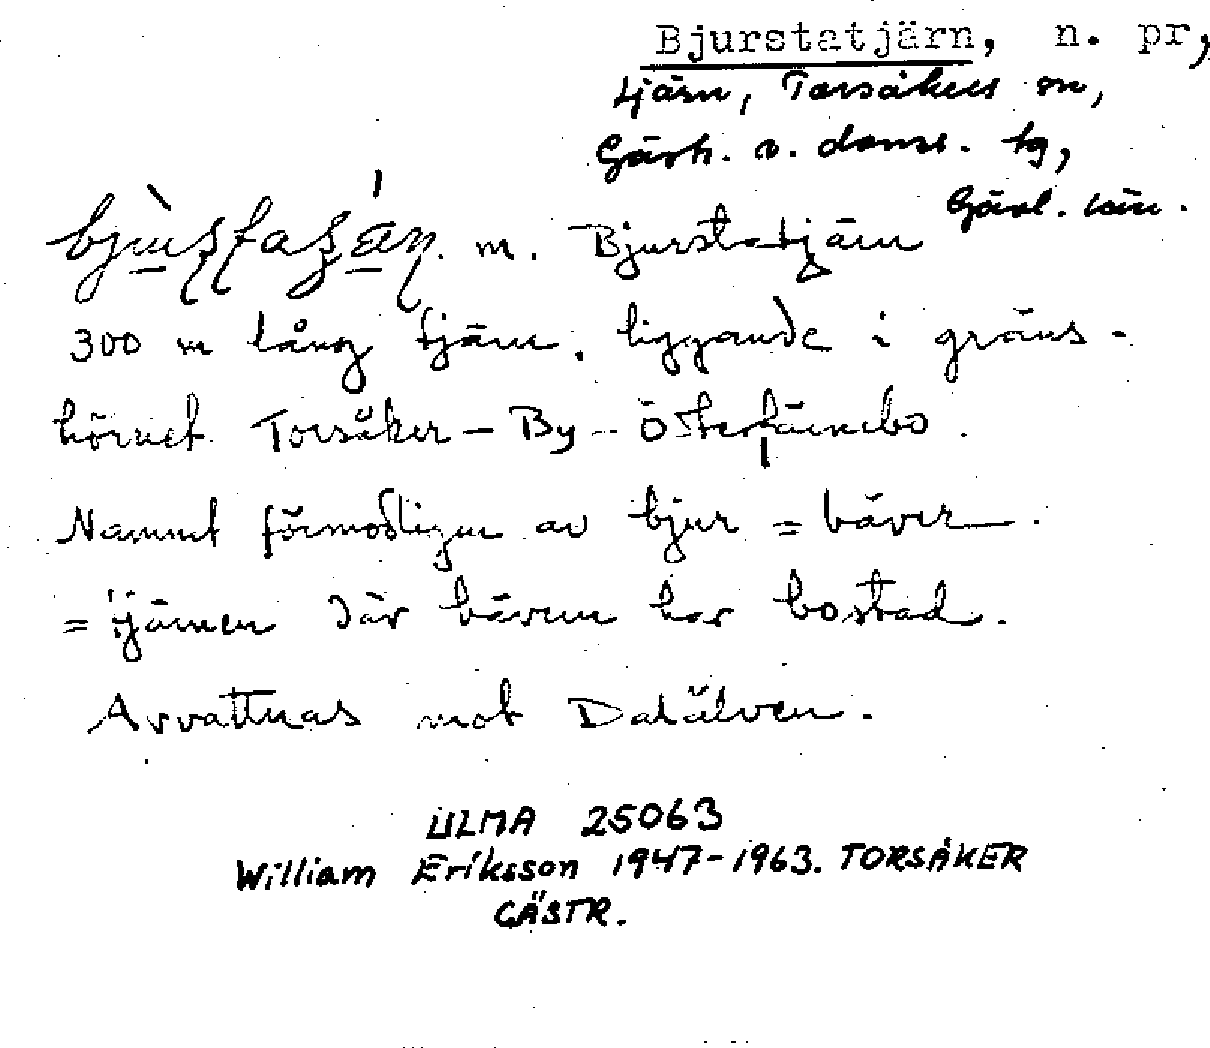 Bjurstatjärn, n. pr,
tjärn, Torsåkers sn,
Gästr. v. doms. tg,
Gävl. län.
m. Bjurstatjärn
300 m lång tjärn, liggande i gräns-
hörnet Torsåker - By - Österfärnebo.
Namnet förmodligen av bjur = bäver.
= tjärnen där bävern har bostad.
Avvattnas mot Dalälven.
ULMA 25063
William Eriksson 1947-1963. TORSÅKER
GÄSTR.